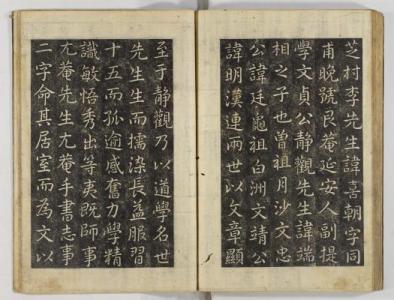 芝村李先生諱喜朝字同
甫晩號艮菴延安人副提
學文貞公靜觀先生諱端
相之子也曾祖月沙文忠
公諱廷龜祖白洲文靖公
諱明漢連兩世以文章顯
至于靜觀乃以道學名世
先生生而擩染長益服習
十五而孤逾感奮力學精
識敏悟秀出等夷既師事
尤菴先生尤菴手書志事
二字命其居室而為文以